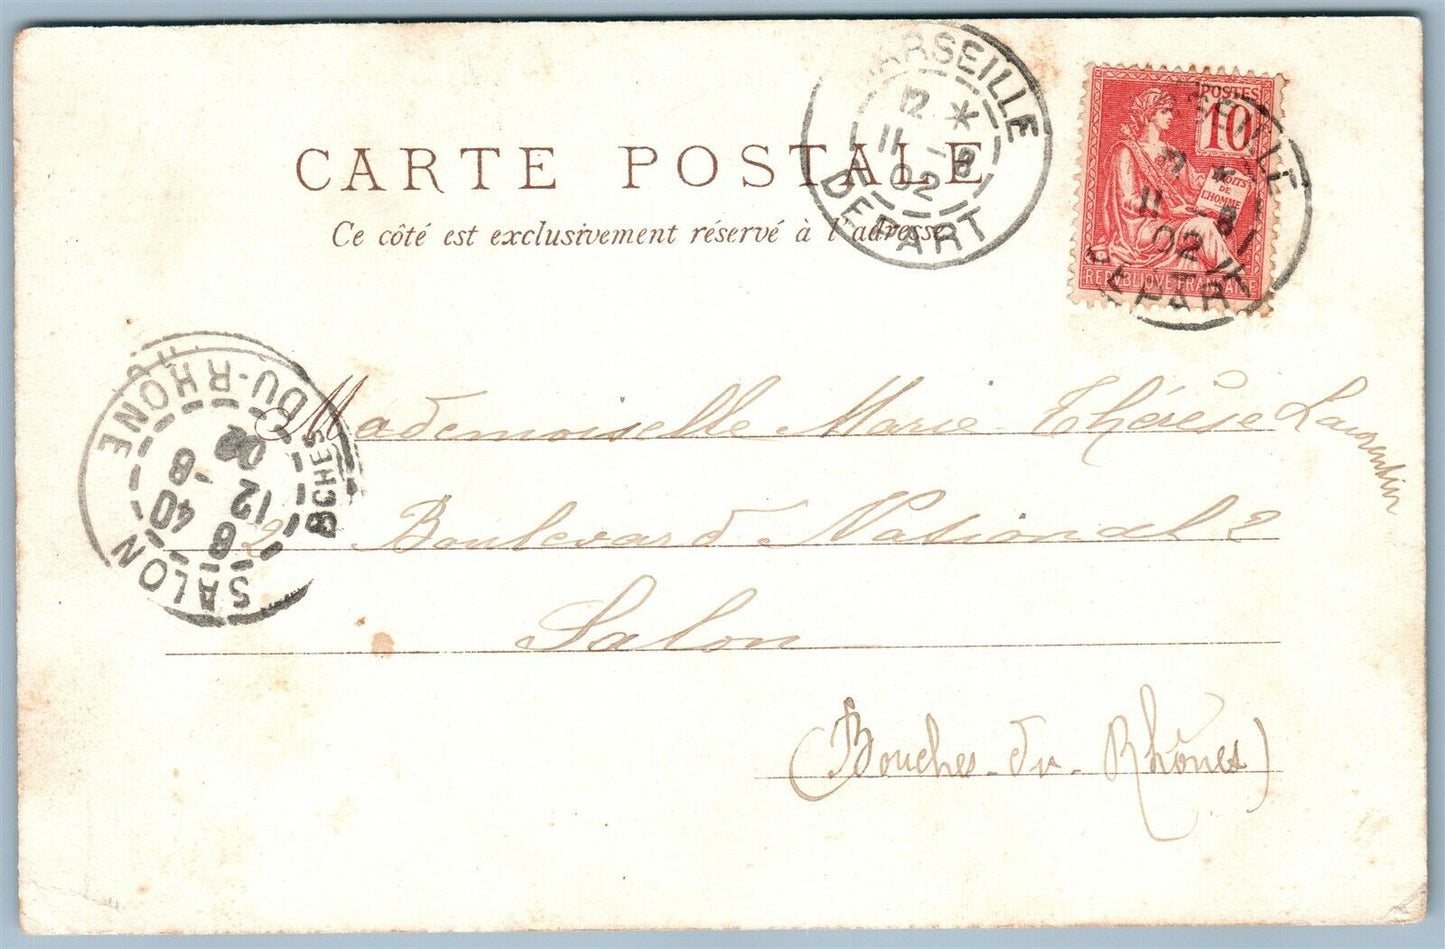 MARSEILLE
12 *
11 - 8
02
DEPART
POSTES
10
DROITS
DE
L'HOMME
REPUBLIQUE FRANÇAISE
SEILLE
*
11 - 8
02
DEPART
CARTE POSTALE
Ce côté est exclusivement réservé à l'adresse
SALON
BCHES DU-RHONE
8 40
12 8
02
Mademoiselle Marie Thérèse Laurentin
2 Boulevard National 2
Salon
(Bouches-du-Rhônes)